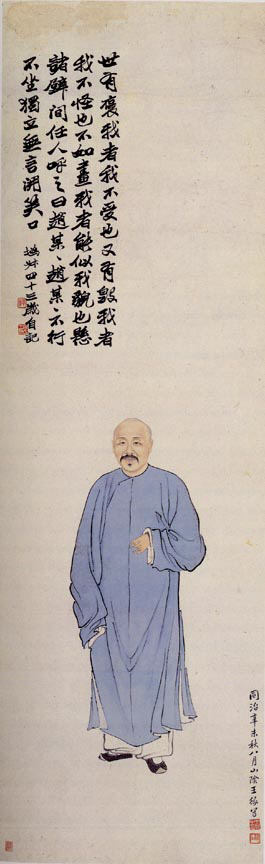 世有褒我者我不愛也又有毀我者
我不怪也不如畫我者能似我貌也懸
諸壁間任人呼之曰趙某、趙某、不行
不坐獨立無言開笑口
撝叔四十三歲自記
同治辛未秋八月山陰王緣寫